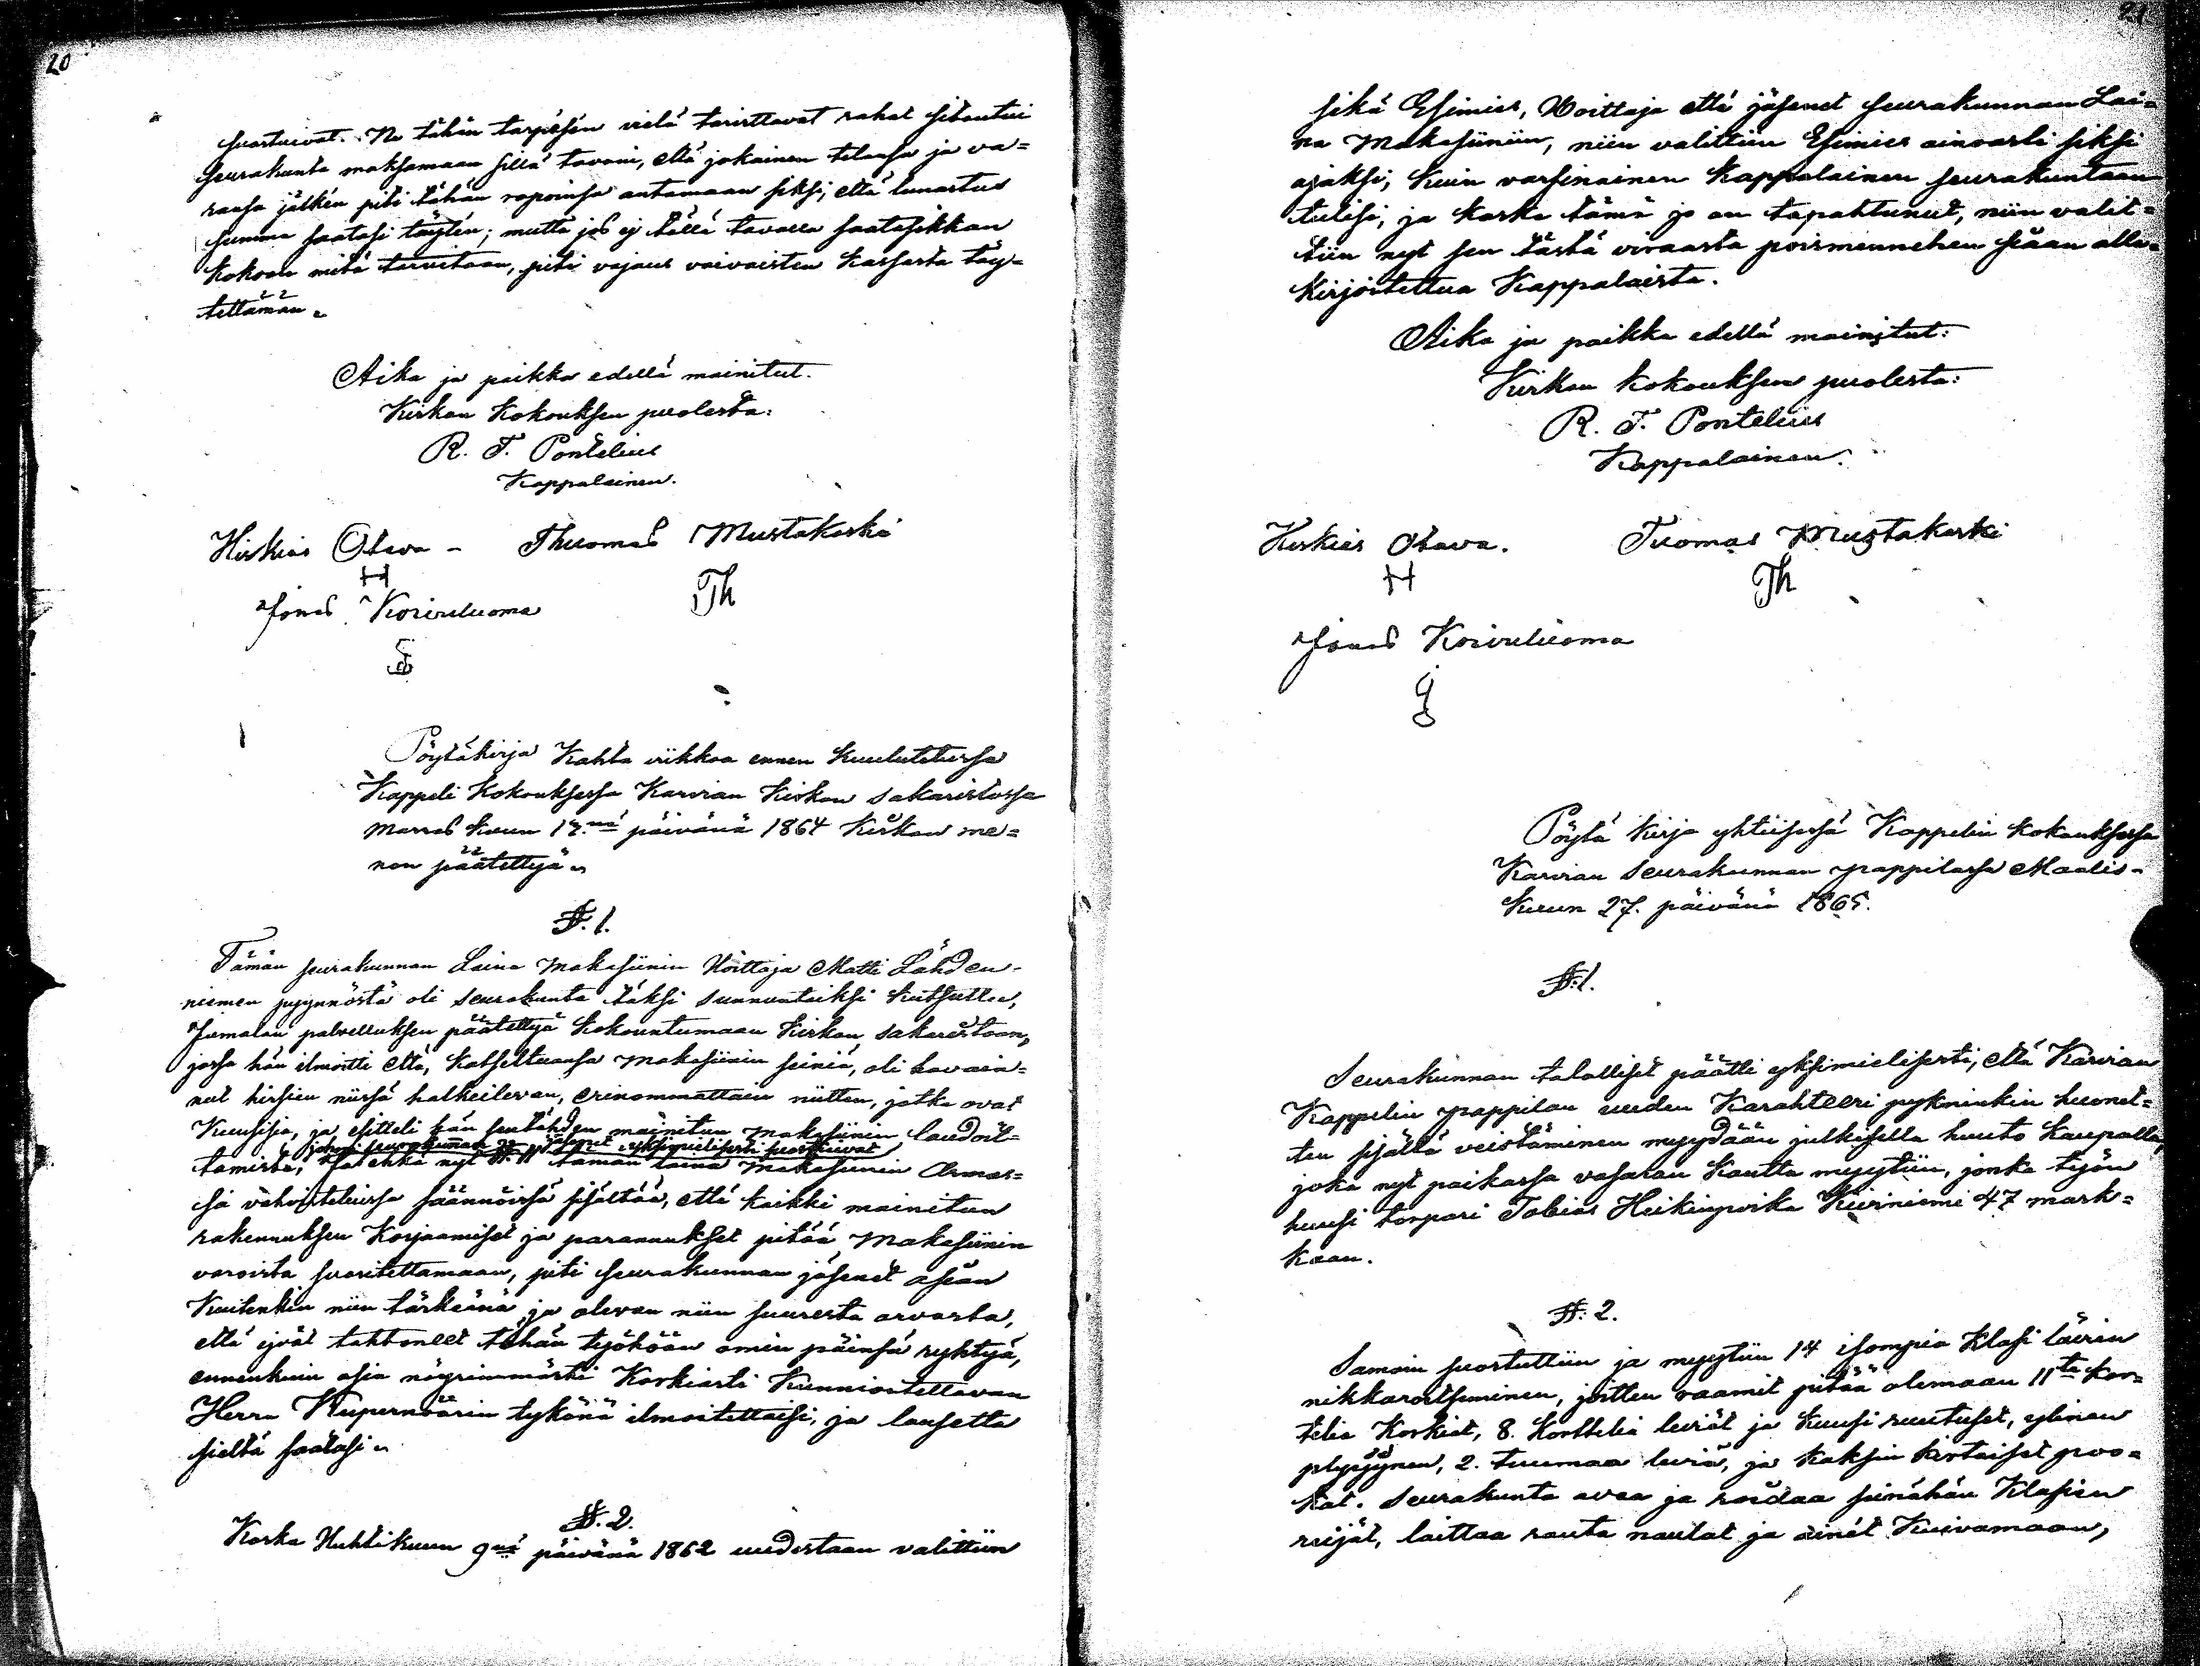 20
suostuivat. Ne tähän tarpeesen vielä tarvittavat rahat sitoutui
seurakunta maksamaan sillä tavoin, että jokainen tilansa ja va=
ransa jälkén piti tähän roponsa antamaan siksi, että lunastus
summa saatasi täytén; mutta jos ej tällä tavalla saatasikkan
kokoon mitä tarvitaan, piti vajaus vaivaisten kassasta täy=
tettämän.
Aika ja paikka edellä mainitut.
Kirkon Kokouksen puolesta:
R. F. Pontelius
Kappalainen.
Hiskias Otava - Thuomas Mustakoski
H
Jonas Koivuluoma
Th
Pöytäkirja Kahta viikkoa ennen kuulutetussa
Kappeli Kokouksessa Karvian Kirkon sakaristossa
Marras kuun 17.nä päivänä 1864 Kirkon me=
non päätettyä.
§. 1.
Tämän seurakunnan Laina Makasiinin Hoittaja Matti Lähden-
niemen pyynnöstä oli seurakunta täksi sunnuntaiksi kutsuttu,
Jumalan palvelluksen päätettyä kokountumaan Kirkon sakaristoon,
jossa hän ilmoitti että, katseltuansa Makasiinin seiniä, oli havain=
nut hirsien niissä halkeilevan, erinommattain niitten, jotka ovat
Kuusisia, ja esitteli hän sentähden mainitun Makasiinin laudoit=
johon seurakunnan jäsenet yksimielisesti suostuivat
tamista, Ja ehkä nyt §. 11 tämän laina Makasiinin Armos=
sa vahvistetuissa säännöissä sisältää, että kaikki mainitun
rakennuksen Korjaamiset ja parannukset pitää Makasiinin
varoista suoritettamaan, piti seurakunnan jäsenet asian
Kuitenkin niin tärkeänä ja olevan niin suuresta arvosta,
että ejvät tahtoneet tähän työhöön omin päinsä ryhtyä,
ennenkuin asia nöyrimmästi Korkiasti Kunnioitettavan
Herra Kupernöörin tykönä ilmoitettaisi, ja lausetta
sieltä saatasi.
§. 2.
Koska Huhtikuun 9nä päivänä 1862 uudestaan valittiin
21
sekä Esimies, Hoittaja että jäsenet seurakunnan Lai=
na Makasiiniin, niin valittiin Esimies ainoasti siksi
ajaksi, kuin varsinainen Kappalainen seurakuntaan
tulisi, ja koska tämä jo on tapahtunut, niin valit=
tiin nyt sen tästä virasta poismennehen siaan alle=
kirjoitettua Kappalaista.
Aika ja paikka edellä mainitut:
Kirkon kokouksen puolesta:
R. F. Pontelius
Kappalainen.
Hiskias Otava. Tuomas Mustakoski
H Th
Jonas Koivuluoma
Pöytä Kirja yhteisessä Kappelin kokouksessa
Karvian Seurakunnan pappilassa Maalis-
kuun 27. päivänä 1865.
§. 1.
Seurakunnan talolliset päätti yksimielisesti, että Karvian
Kappelin pappilan uuden Karahteeri pykninkin huonet=
ten sisältä veistäminen myydään julkisella huuto kaupalla,
joka nyt paikassa vasaran kautta myytiin, jonka työn
huusi torpari Tobias Heikinpoika Kiviniemi 47 mark=
kaan.
§. 2.
Samoin suostuttiin ja myytiin 14 isompia klasi lävin
nikkaroitseminen, joitten raamit pitää olemaan 11ta kor=
telia korkiat, 8. korttelia leviät ja kuusi ruutuset, ylinen
2. tuumaa leviä, ja kaksin kertaiset proo=
kat. Seurakunta avaa ja seinähän Klasien
reijät, laittaa rauta naulat ja ainet Kuivamaan,